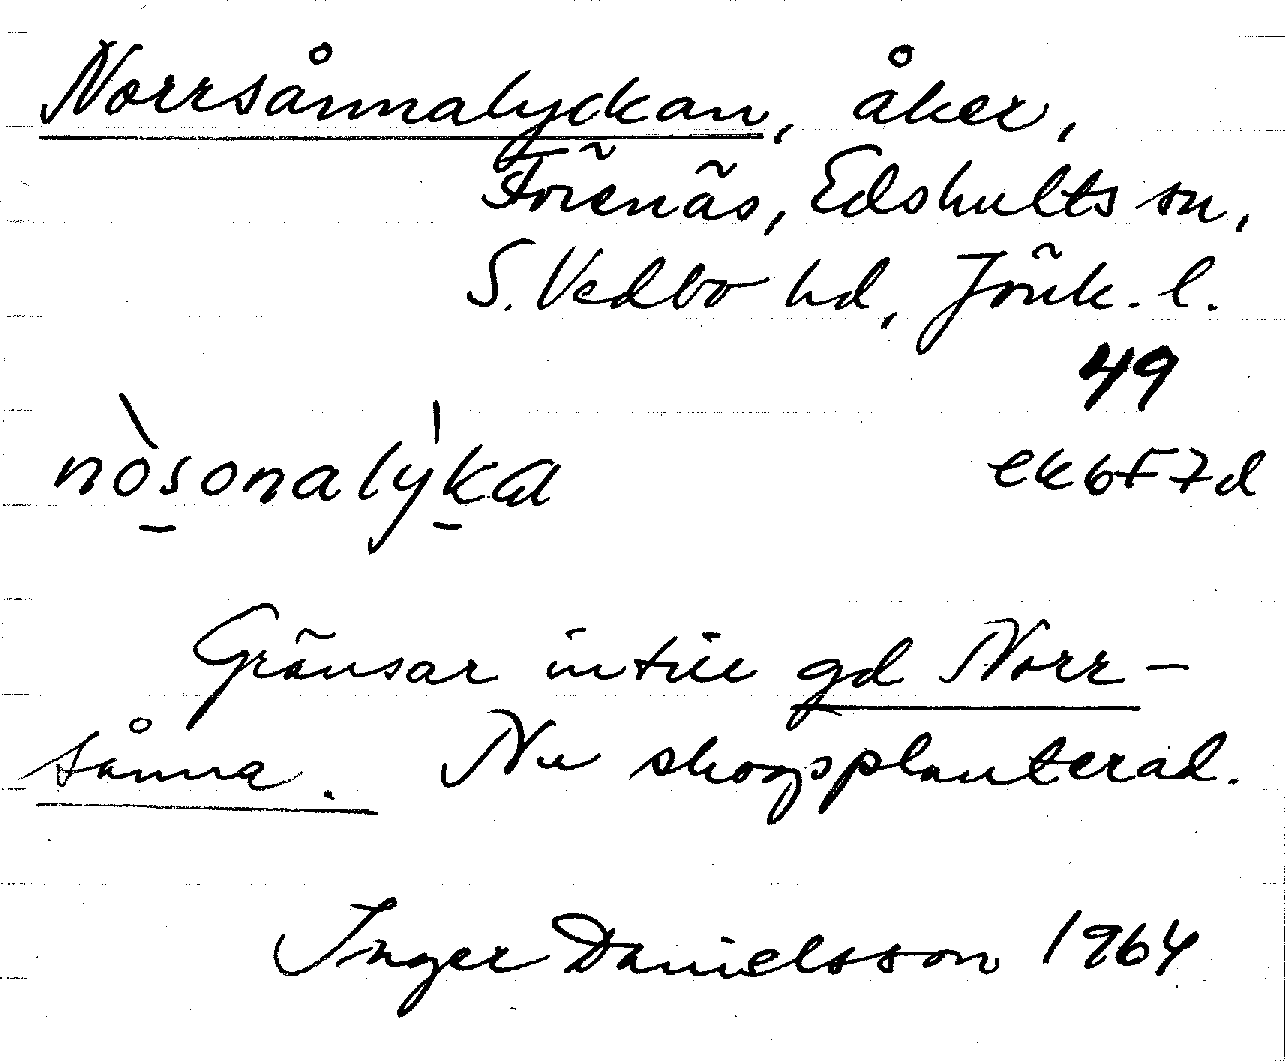 Norrsånnalyckan, åker,
Förenäs, Edshults sn,
S. Vedbo hd, Jönk. l.
49
nòsonalýka
ek 6F7d
Gränsar intill gd Norr-
sånna. Nu skogsplanterad.
Inger Danielsson 1964